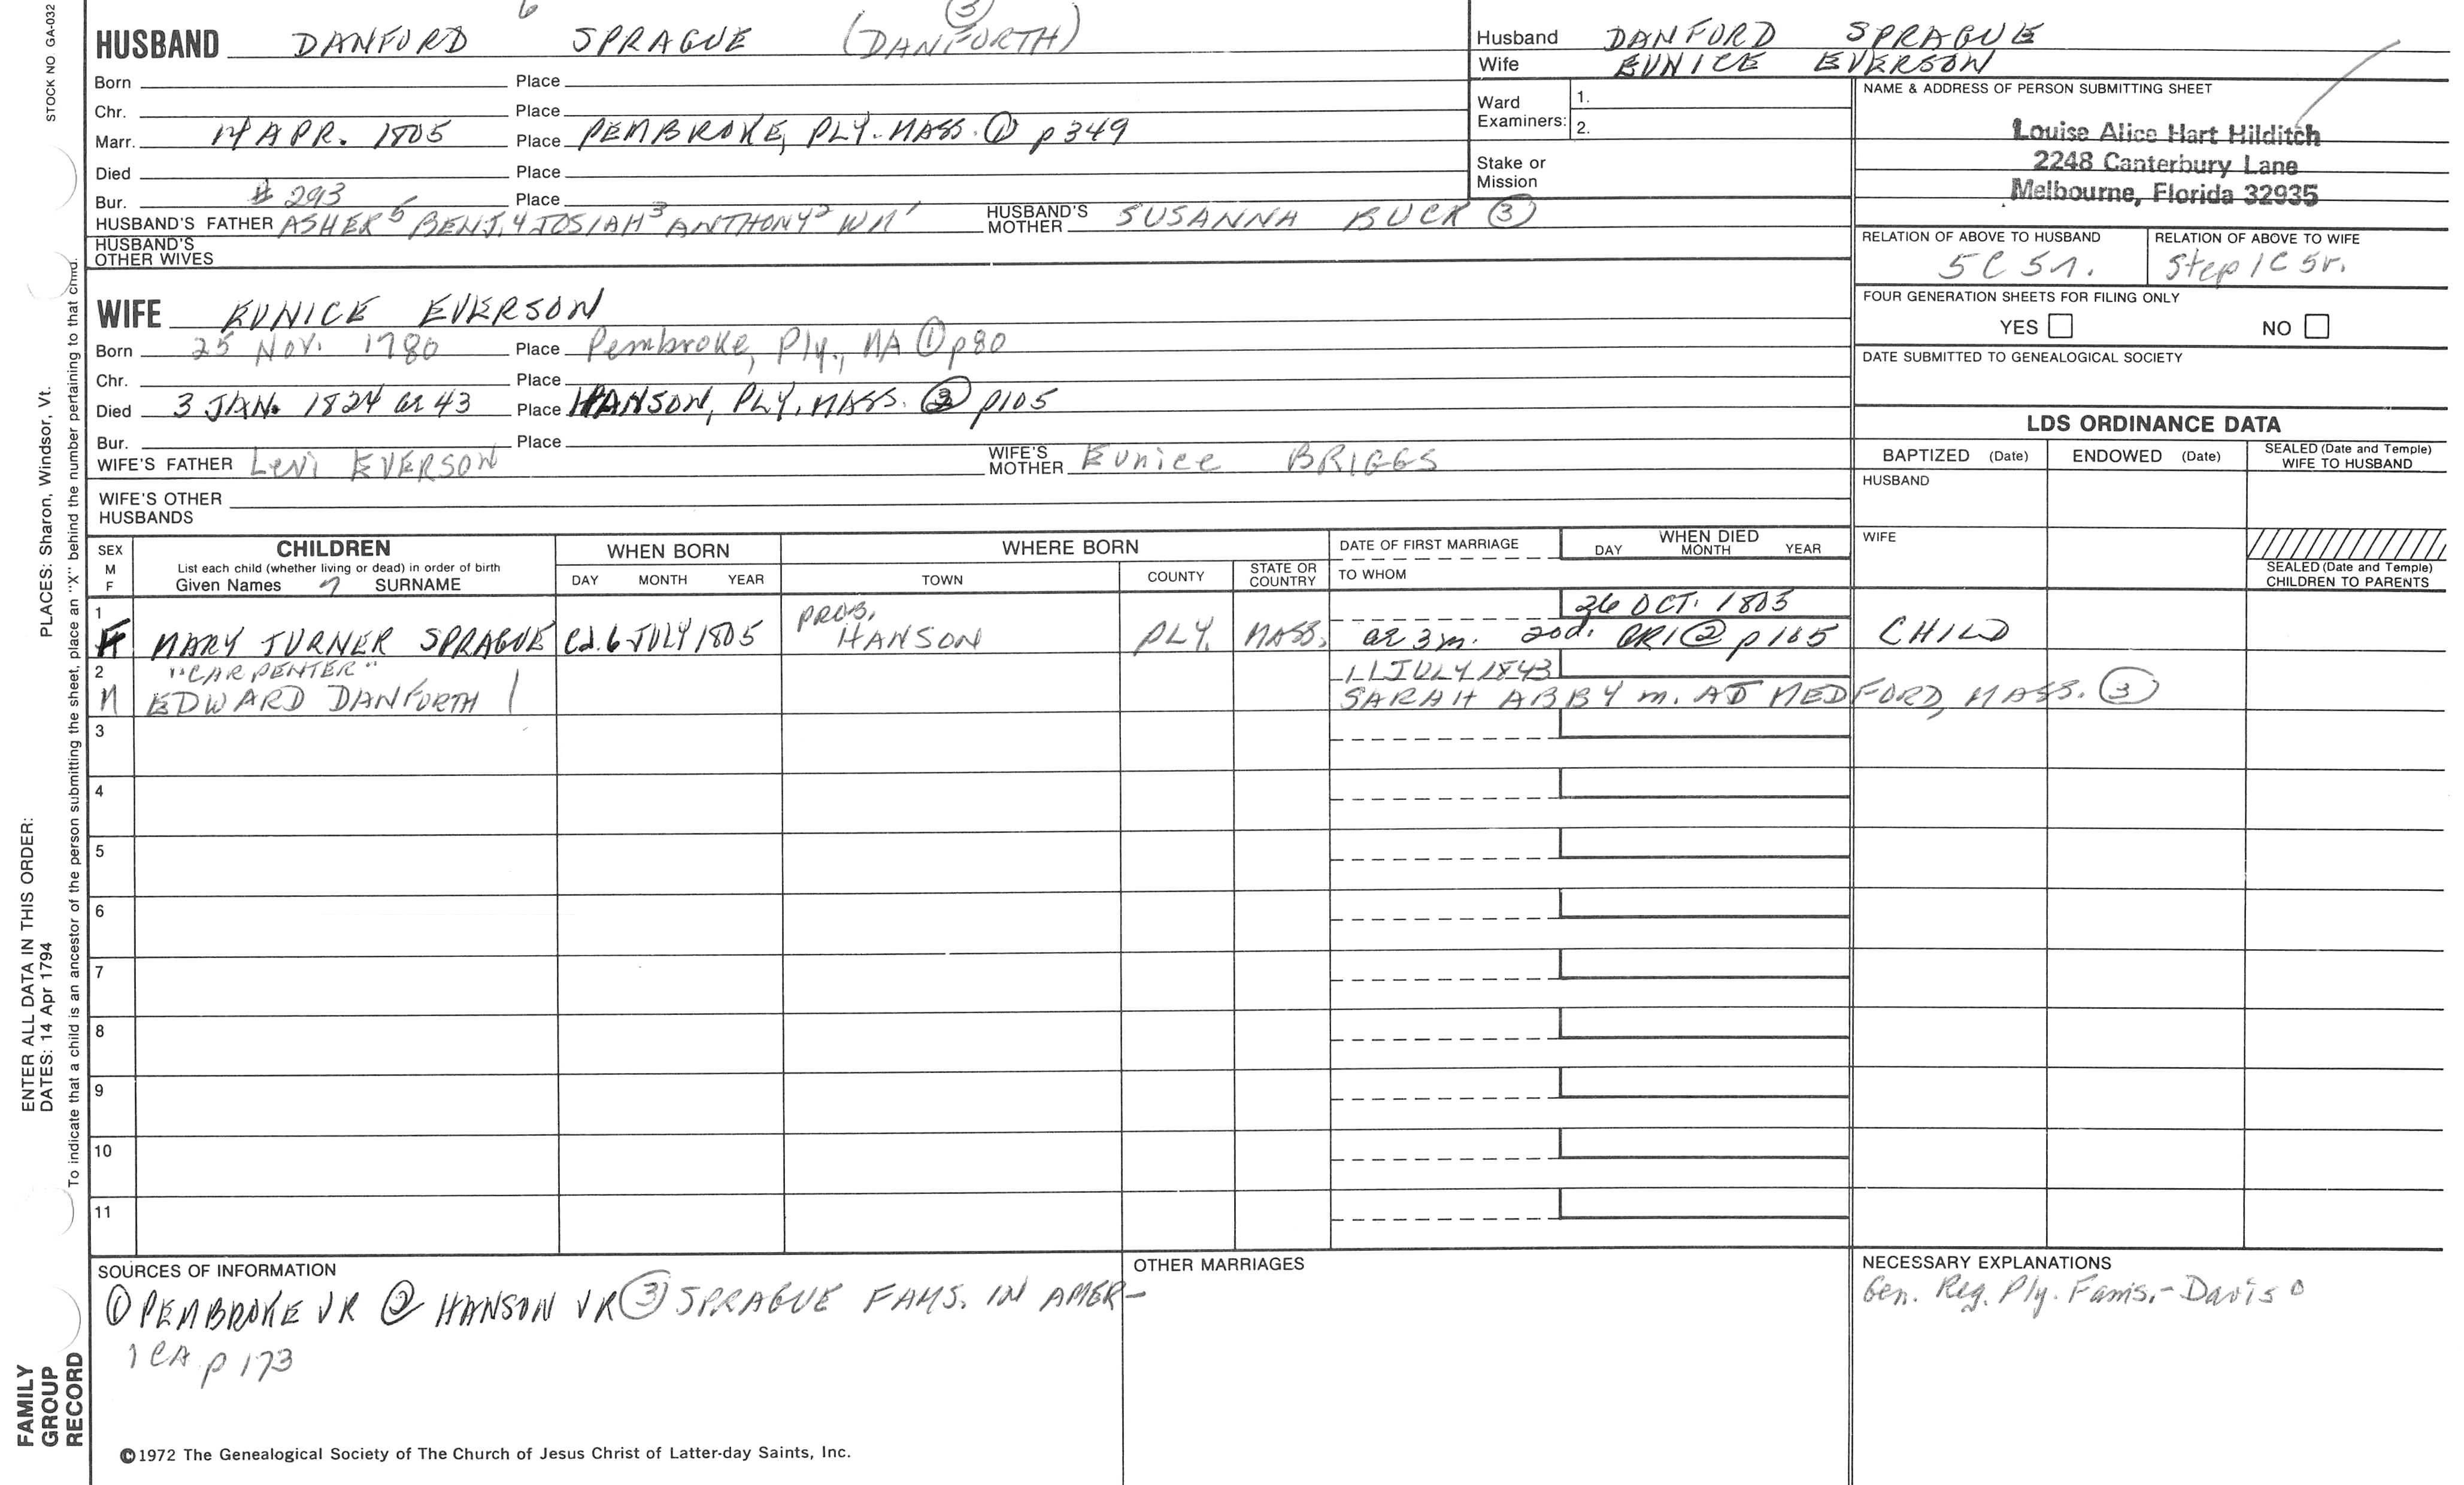 STOCK NO. GA-032
6 (3)
HUSBAND DANFORD SPRAGUE (DANFORTH)
Born Place
Chr. Place
Marr. 14 APR. 1805 Place PEMBROKE, PLY. MASS. (1) p 349
Died Place
Bur. # 293 Place
HUSBAND'S FATHER ASHER 5 BENJ. 4 JOSIAH 3 ANTHONY 2 WM 1 HUSBAND'S MOTHER SUSANNA BUCK (3)
HUSBAND'S OTHER WIVES
Husband DANFORD SPRAGUE
Wife EUNICE EVERSON
Ward Examiners: 1.
2.
Stake or Mission
NAME & ADDRESS OF PERSON SUBMITTING SHEET
Louise Alice Hart Hilditch
2248 Canterbury Lane
Melbourne, Florida 32935
RELATION OF ABOVE TO HUSBAND RELATION OF ABOVE TO WIFE
5C 5r. Step 1C 5r.
FOUR GENERATION SHEETS FOR FILING ONLY
YES NO
DATE SUBMITTED TO GENEALOGICAL SOCIETY
WIFE EUNICE EVERSON
Born 25 NOV. 1780 Place Pembroke, Ply., MA (1) p80
Chr. Place
Died 3 JAN. 1824 ae 43 Place HANSON, PLY. MASS. (2) p105
Bur. Place
WIFE'S FATHER Levi EVERSON WIFE'S MOTHER Eunice BRIGGS
WIFE'S OTHER HUSBANDS
LDS ORDINANCE DATA
BAPTIZED (Date) ENDOWED (Date) SEALED (Date and Temple) WIFE TO HUSBAND
HUSBAND
WIFE
SEALED (Date and Temple) CHILDREN TO PARENTS
SEX M F
CHILDREN
List each child (whether living or dead) in order of birth
Given Names 7 SURNAME
WHEN BORN
DAY MONTH YEAR
WHERE BORN
TOWN COUNTY STATE OR COUNTRY
DATE OF FIRST MARRIAGE
TO WHOM
WHEN DIED
DAY MONTH YEAR
1 PROB. 26 OCT. 1805
F MARY TURNER SPRAGUE cd. 6 JULY 1805 HANSON PLY. MASS. ae 3 m. 20 d. GR1 (2) p 105 CHILD
2 "CARPENTER" 11 JULY 1843
M EDWARD DANFORTH SARAH ABBY m. AT MEDFORD, MASS. (3)
3
4
5
6
7
8
9
10
11
SOURCES OF INFORMATION
(1) PEMBROKE VR (2) HANSON VR (3) SPRAGUE FAMS. IN AMER-
ICA p 173
OTHER MARRIAGES
NECESSARY EXPLANATIONS
Gen. Reg. Ply. Fams. - Davis 0
©1972 The Genealogical Society of The Church of Jesus Christ of Latter-day Saints, Inc.
PLACES: Sharon, Windsor, Vt.
To indicate that a child is an ancestor of the person submitting the sheet, place an "X" behind the number pertaining to that child.
ENTER ALL DATA IN THIS ORDER:
DATES: 14 Apr 1794
FAMILY
GROUP
RECORD